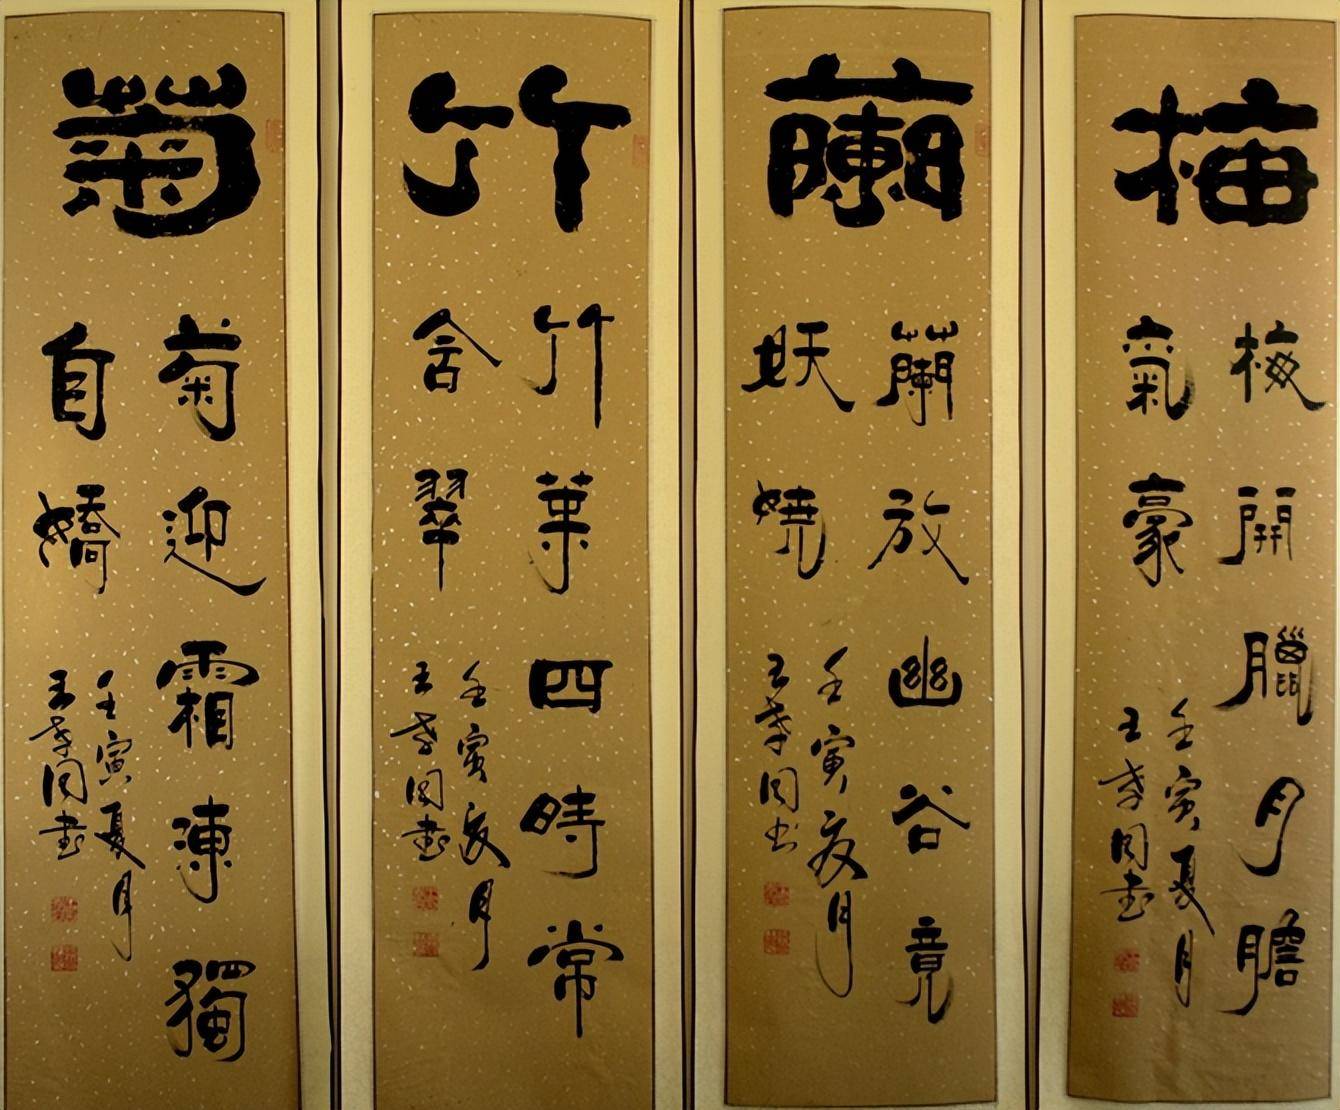 梅
梅開臘月膽
氣豪
壬寅夏月
王孝書
蘭
蘭放幽谷竟
妖嬈
壬寅夏月
王孝书
竹
竹葉四時常
含翠
壬寅夏月
王孝書
菊
菊迎霜凍獨
自嬌
壬寅夏月
王孝書